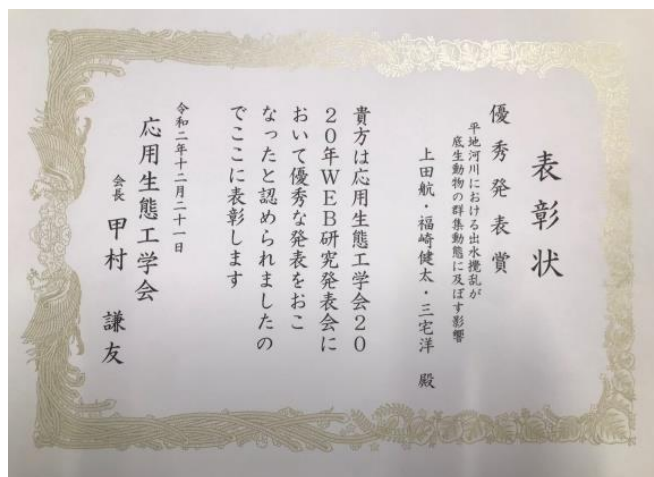 表彰状
優秀発表賞
平地河川における出水攪乱が
底生動物の群集動態に及ぼす影響
上田航・福崎健太・三宅洋 殿
貴方は応用生態工学会20
20年WEB研究発表会に
おいて優秀な発表をおこ
なったと認められましたの
でここに表彰します
令和二年十二月二十一日
応用生態工学会
会長 甲村 謙友